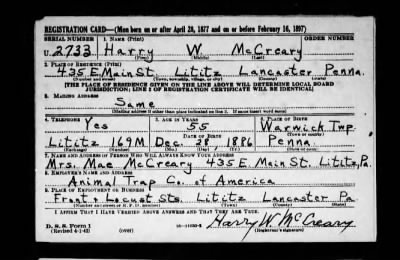 REGISTRATION CARD—(Men born on or after April 28, 1877 and on or before February 16, 1897)
SERIAL NUMBER 1. NAME (Print)
U. 2733 Harry W. McCreary
(First) (Middle) (Last)
2. PLACE OF RESIDENCE (Print)
435 E. Main St. Lititz Lancaster Penna.
(Number and street) (Town, township, village, or city) (County) (State)
[THE PLACE OF RESIDENCE GIVEN ON THE LINE ABOVE WILL DETERMINE LOCAL BOARD
JURISDICTION; LINE 2 OF REGISTRATION CERTIFICATE WILL BE IDENTICAL]
3. MAILING ADDRESS
Same
[Mailing address if other than place indicated on line 2. If same insert word same]
4. TELEPHONE 5. AGE IN YEARS 6. PLACE OF BIRTH
Yes 55 Warwick Twp.
DATE OF BIRTH (Town or county)
Lititz 169M Dec. 28, 1886 Penna.
(Exchange) (Number) (Mo.) (Day) (Yr.) (State or country)
7. NAME AND ADDRESS OF PERSON WHO WILL ALWAYS KNOW YOUR ADDRESS
Mrs. Mae McCreary 435 E. Main St. Lititz, Pa.
8. EMPLOYER'S NAME AND ADDRESS
Animal Trap Co. of America
9. PLACE OF EMPLOYMENT OR BUSINESS
Front & Locust Sts. Lititz Lancaster Pa
(Number and street or R. F. D. number) (Town) (County) (State)
I AFFIRM THAT I HAVE VERIFIED ABOVE ANSWERS AND THAT THEY ARE TRUE.
D. S. S. Form 1
(Revised 4-1-42) (over) Harry W. McCreary
(Registrant's signature)